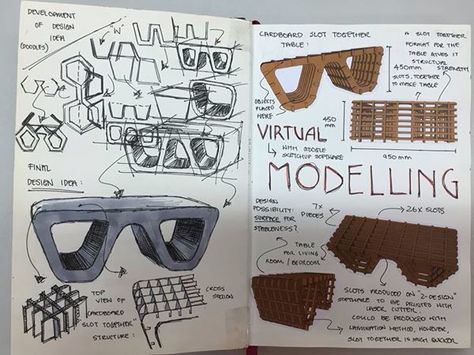 DEVELOPMENT
OF DESIGN
IDEA
(DOODLES)
"W"
FINAL
DESIGN IDEA:
TOP
VIEW OF
CARDBOARD
SLOT TOGETHER"
STRUCTURE:
CROSS
SECTION
CARDBOARD SLOT TOGETHER
TABLE:
A SLOT TOGETHER
FORMAT FOR THE
TABLE GIVES IT
STRUCTURAL STRENGTH
450mm
SLOTS TOGETHER
TO MAKE TABLE
OBJECTS
PLACED
HERE
450
mm
950 mm
VIRTUAL
WITH GOOGLE
SKETCHUP SOFTWARE
MODELLING
DESIGN
POSSIBILITY:
SURFACE FOR
STABLENESS?
7x
PIECES
26x SLOTS
TABLE
FOR LIVING
ROOM / BEDROOM
SLOTS PRODUCED ON "2-DESIGN"
SOFTWARE TO BE PRINTED WITH
LASER CUTTER.
COULD BE PRODUCED WITH
LAMINATION METHOD, HOWEVER,
SLOT TOGETHER IS MUCH QUICKER